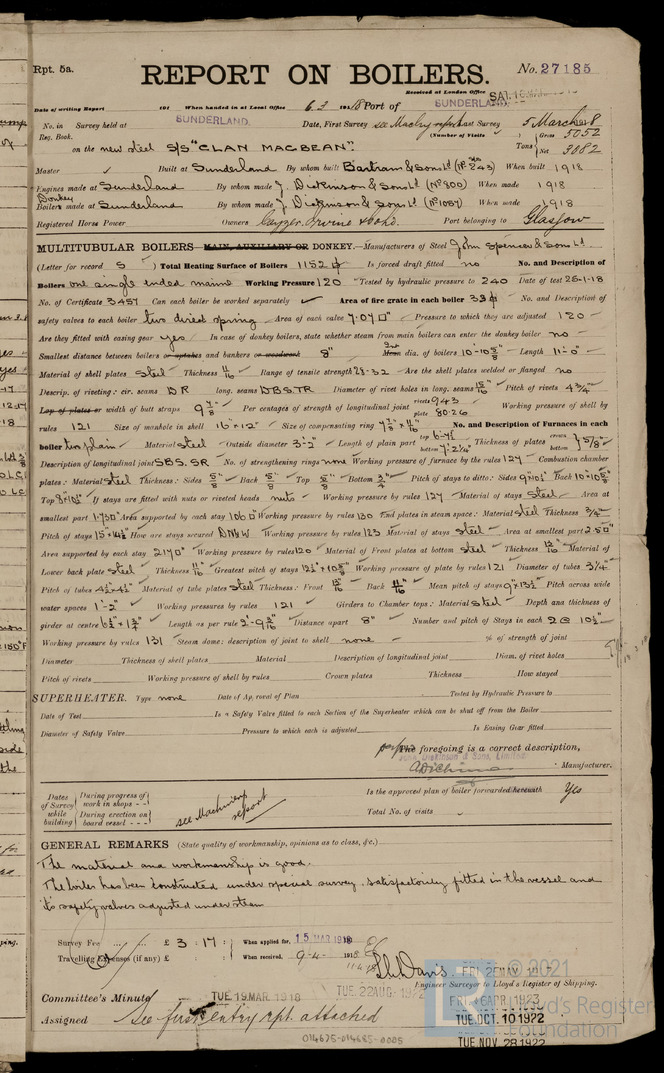 Rpt. 5a.
REPORT ON BOILERS.
No. 27185
Received at London Office
Date of writing Report 191 When handed in at Local Office 6.3 1918 Port of SUNDERLAND
No. in Reg. Book.
Survey held at SUNDERLAND. Date, First Survey see Machy report Last Survey 5 March 1918
(Number of Visits )
on the new steel S/S "CLAN MACBEAN". Tons { Gross 5052 Net 3882
Master Built at Sunderland By whom built Bartram & Sons Ld (No 243) When built 1918
Engines made at Sunderland By whom made J. Dickinson & Sons Ld (No 800) When made 1918
Donkey Boilers made at Sunderland By whom made J. Dickinson & Sons Ld (No 1087) When made 1918
Registered Horse Power Owners Cayzer Irvine & Co Ld. Port belonging to Glasgow
MULTITUBULAR BOILERS MAIN, AUXILIARY OR DONKEY.—Manufacturers of Steel John Spencer & Sons Ld.
(Letter for record S ) Total Heating Surface of Boilers 1152 Is forced draft fitted no No. and Description of
Boilers one single ended marine Working Pressure 120 Tested by hydraulic pressure to 240 Date of test 28-1-18
No. of Certificate 3457 Can each boiler be worked separately Area of fire grate in each boiler 33 No. and Description of
safety valves to each boiler two direct spring Area of each valve 7.07 Pressure to which they are adjusted 120
Are they fitted with easing gear yes In case of donkey boilers, state whether steam from main boilers can enter the donkey boiler no
Smallest distance between boilers or uptakes and bunkers or woodwork 8" Mean dia. of boilers 10-10 5/8 Length 11-0"
Material of shell plates Steel Thickness 11/16 Range of tensile strength 28-32 Are the shell plates welded or flanged no
Descrip. of riveting: cir. seams DR long. seams DBS.TR Diameter of rivet holes in long. seams 15/16 Pitch of rivets 4 3/4
Lap of plates or width of butt straps 9 7/8 Per centages of strength of longitudinal joint rivets 94.3 plate 80.26 Working pressure of shell by
rules 121 Size of manhole in shell 16" x 12" Size of compensating ring 7 7/8 x 11/16 No. and Description of Furnaces in each
boiler two plain Material steel Outside diameter 3-2" Length of plain part Thickness of plates crown bottom } 5/8"
Description of longitudinal joint SBS. SR No. of strengthening rings none Working pressure of furnace by the rules 127 Combustion chamber
plates: Material steel Thickness: Sides 5/8 Back 5/8 Top 5/8 Bottom 3/4 Pitch of stays to ditto: Sides 9 x 10 1/2 Back 10 x 10 5/8
Top 8 x 10 1/2 If stays are fitted with nuts or riveted heads nuts Working pressure by rules 127 Material of stays Steel Area at
smallest part 1.73 Area supported by each stay 106 Working pressure by rules 130 End plates in steam space: Material Steel Thickness 3/4
Pitch of stays 15" x 14 1/2 How are stays secured DN&W Working pressure by rules 123 Material of stays Steel Area at smallest part 2.50
Area supported by each stay 217 Working pressure by rules 120 Material of Front plates at bottom Steel Thickness 13/16 Material of
Lower back plate Steel Thickness 11/16 Greatest pitch of stays Working pressure of plate by rules 121 Diameter of tubes 3 1/4
Pitch of tubes 4 1/2 x 4 1/2 Material of tube plates Steel Thickness: Front 13/16 Back 11/16 Mean pitch of stays 9 x 13 1/2 Pitch across wide
water spaces 1'-2" Working pressures by rules 121 Girders to Chamber tops: Material steel Depth and thickness of
girder at centre Length as per rule 2'-9 Distance apart 8" Number and pitch of Stays in each 2 @ 10 1/2
Working pressure by rules 131 Steam dome: description of joint to shell none % of strength of joint
Diameter Thickness of shell plates Material Description of longitudinal joint Diam. of rivet holes
Pitch of rivets Working pressure of shell by rules Crown plates Thickness How stayed
SUPERHEATER. Type none Date of Approval of Plan Tested by Hydraulic Pressure to
Date of Test Is a Safety Valve fitted to each Section of the Superheater which can be shut off from the Boiler
Diameter of Safety Valve Pressure to which each is adjusted Is Easing Gear fitted
The foregoing is a correct description,
John Dickinson & Sons, Limited
Manufacturer.
Dates of Survey while building { During progress of work in shops - - During erection on board vessel - - - } see Machinery report
Is the approved plan of boiler forwarded herewith Yes
Total No. of visits
GENERAL REMARKS (State quality of workmanship, opinions as to class, &c.)
The material and workmanship is good.
The boiler has been constructed under special survey, satisfactorily fitted in the vessel and
its safety valves adjusted under steam
Survey Fee ... ... £ 3 : 17 : When applied for, 15 MAR 1918
Travelling Expenses (if any) £ : : When received, 9-4- 1918
Davis
Engineer Surveyor to Lloyd's Register of Shipping.
Committee's Minute TUE. 19. MAR. 1918 TUE. 22 AUG. 1922
Assigned See first entry rpt. attached
TUE. OCT. 10 1922
TUE. NOV. 28 1922
014675-014685-0005
© 2021
Lloyd's Register
Foundation